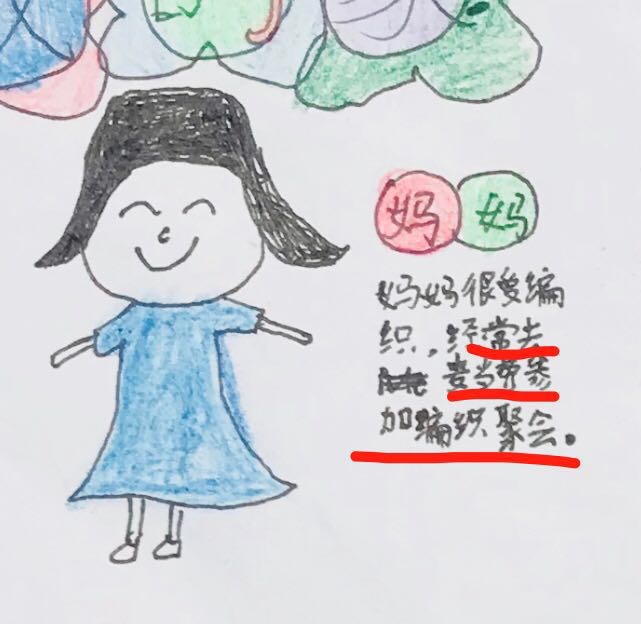 妈妈
妈妈很爱编
织，经常去
麦当劳参
加编织聚会。